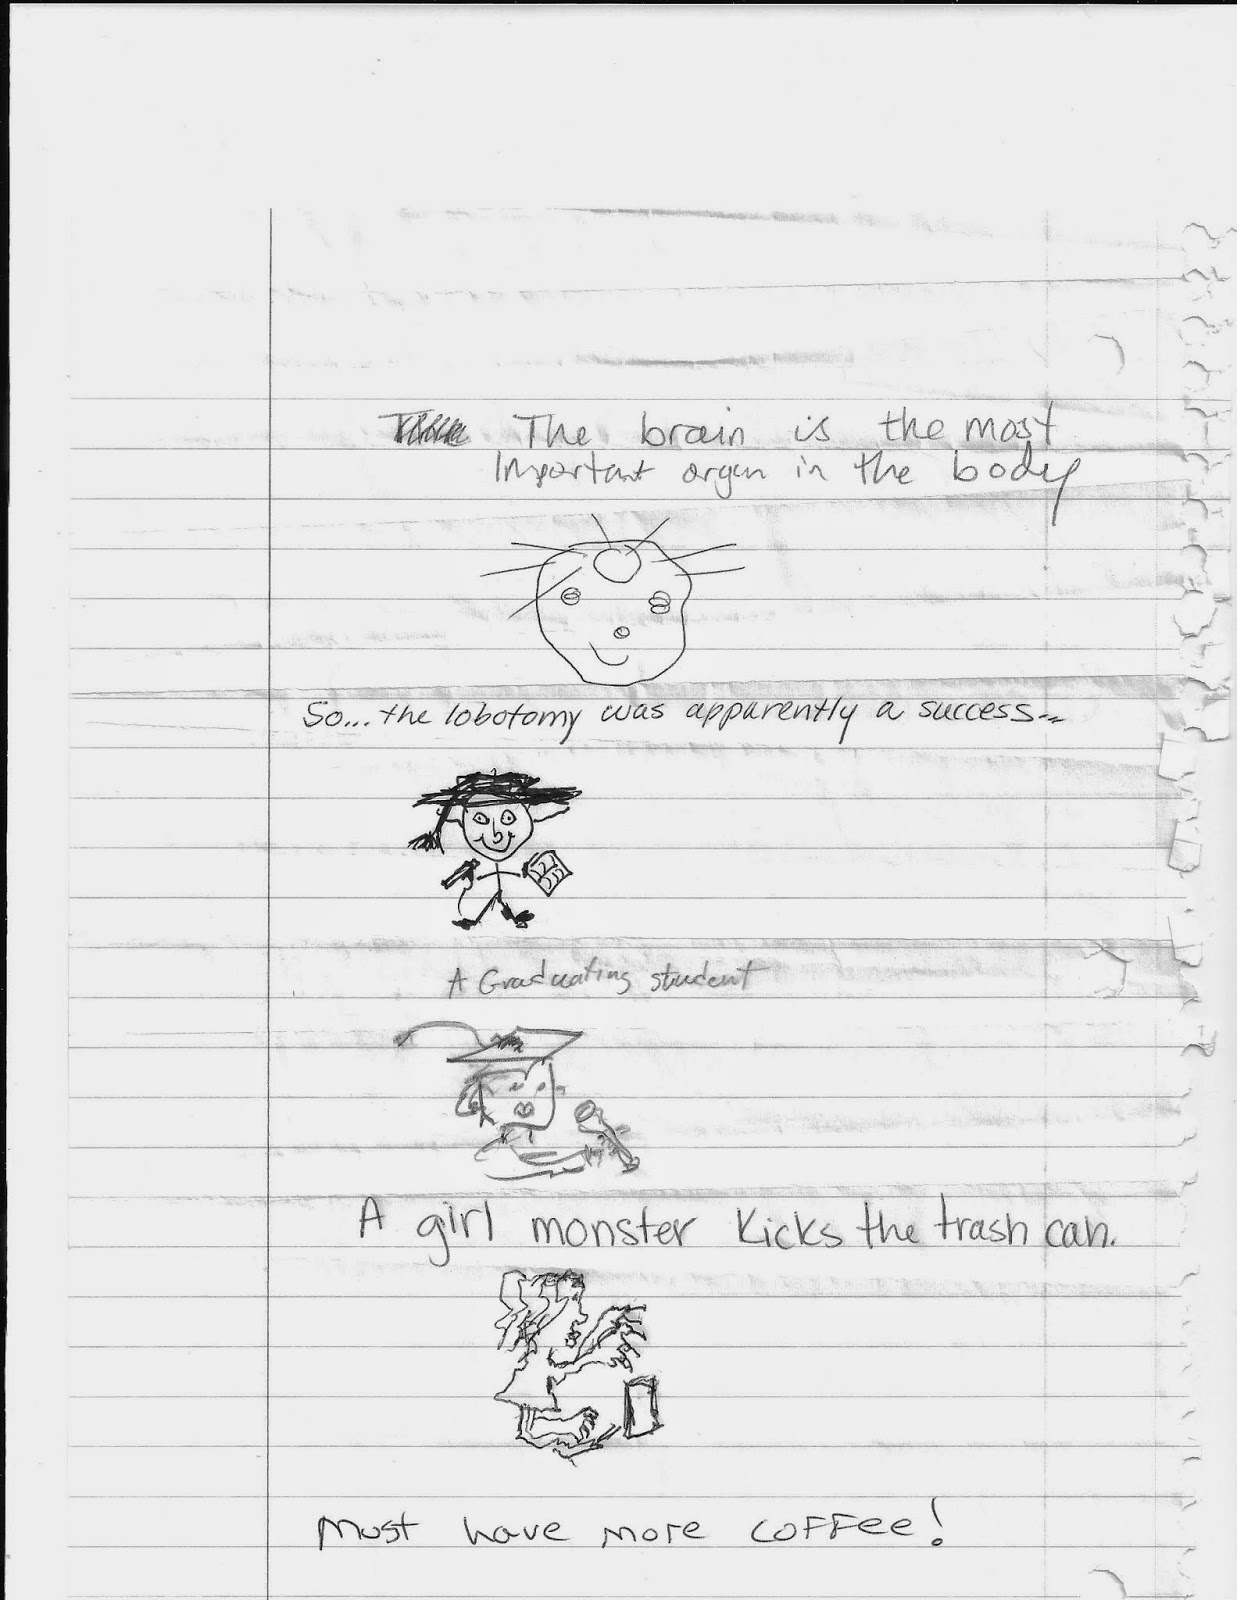 The brain is the most
Important organ in the body
So... the lobotomy was apparently a success...
A Graduating student
A girl monster kicks the trash can.
Must have more coffee!